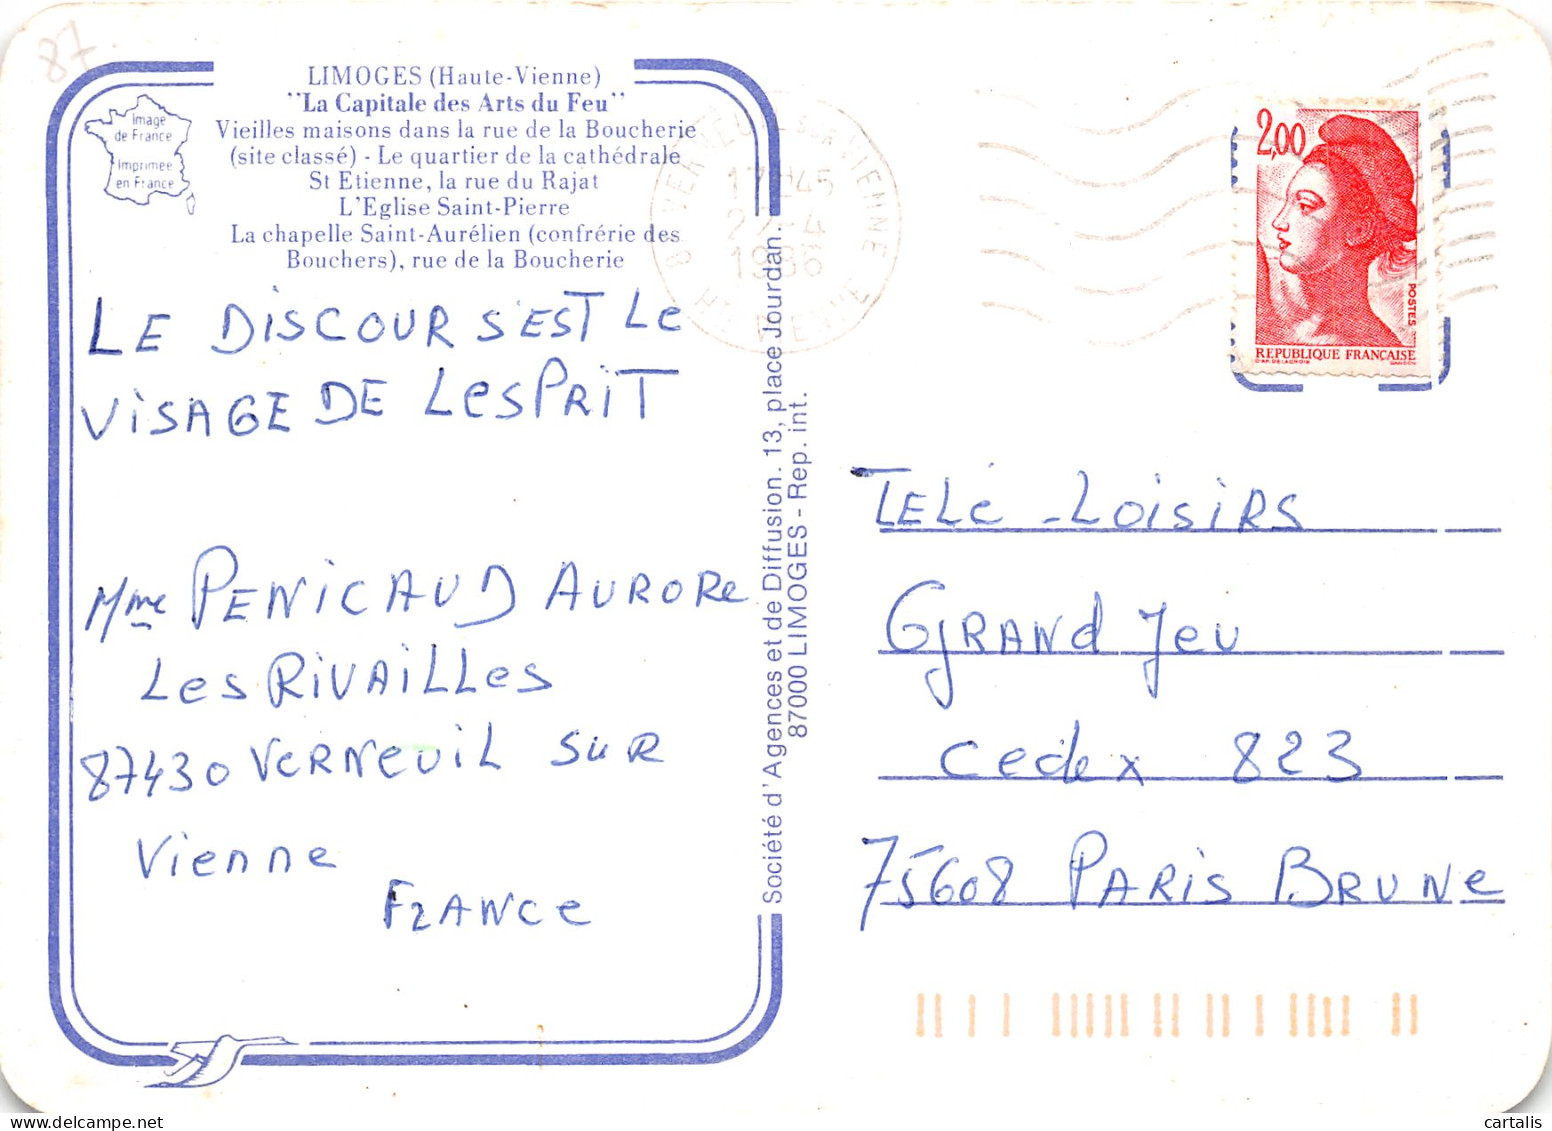 87
LIMOGES (Haute-Vienne)
"La Capitale des Arts du Feu"
Vieilles maisons dans la rue de la Boucherie
(site classé) - Le quartier de la cathédrale
St Etienne, la rue du Rajat
L'Eglise Saint-Pierre
La chapelle Saint-Aurélien (confrérie des
Bouchers), rue de la Boucherie
Image
de France
Imprimée
en France
LE DISCOUR S'EST LE
VISAGE DE LESPRIT
Mme PENICAUD AURORE
LES RIVAILLES
87430 VERNEUIL SUR
Vienne
FRANCE
Société d'Agences et de Diffusion. 13, place Jourdan.
87000 LIMOGES - Rep. int.
17H45
4
1986
VIENNE
2,00
POSTES
REPUBLIQUE FRANÇAISE
TELÉ-LOISIRS
GRANd Jeu
Cedex 823
75608 PARIS BRUNE
cartalis